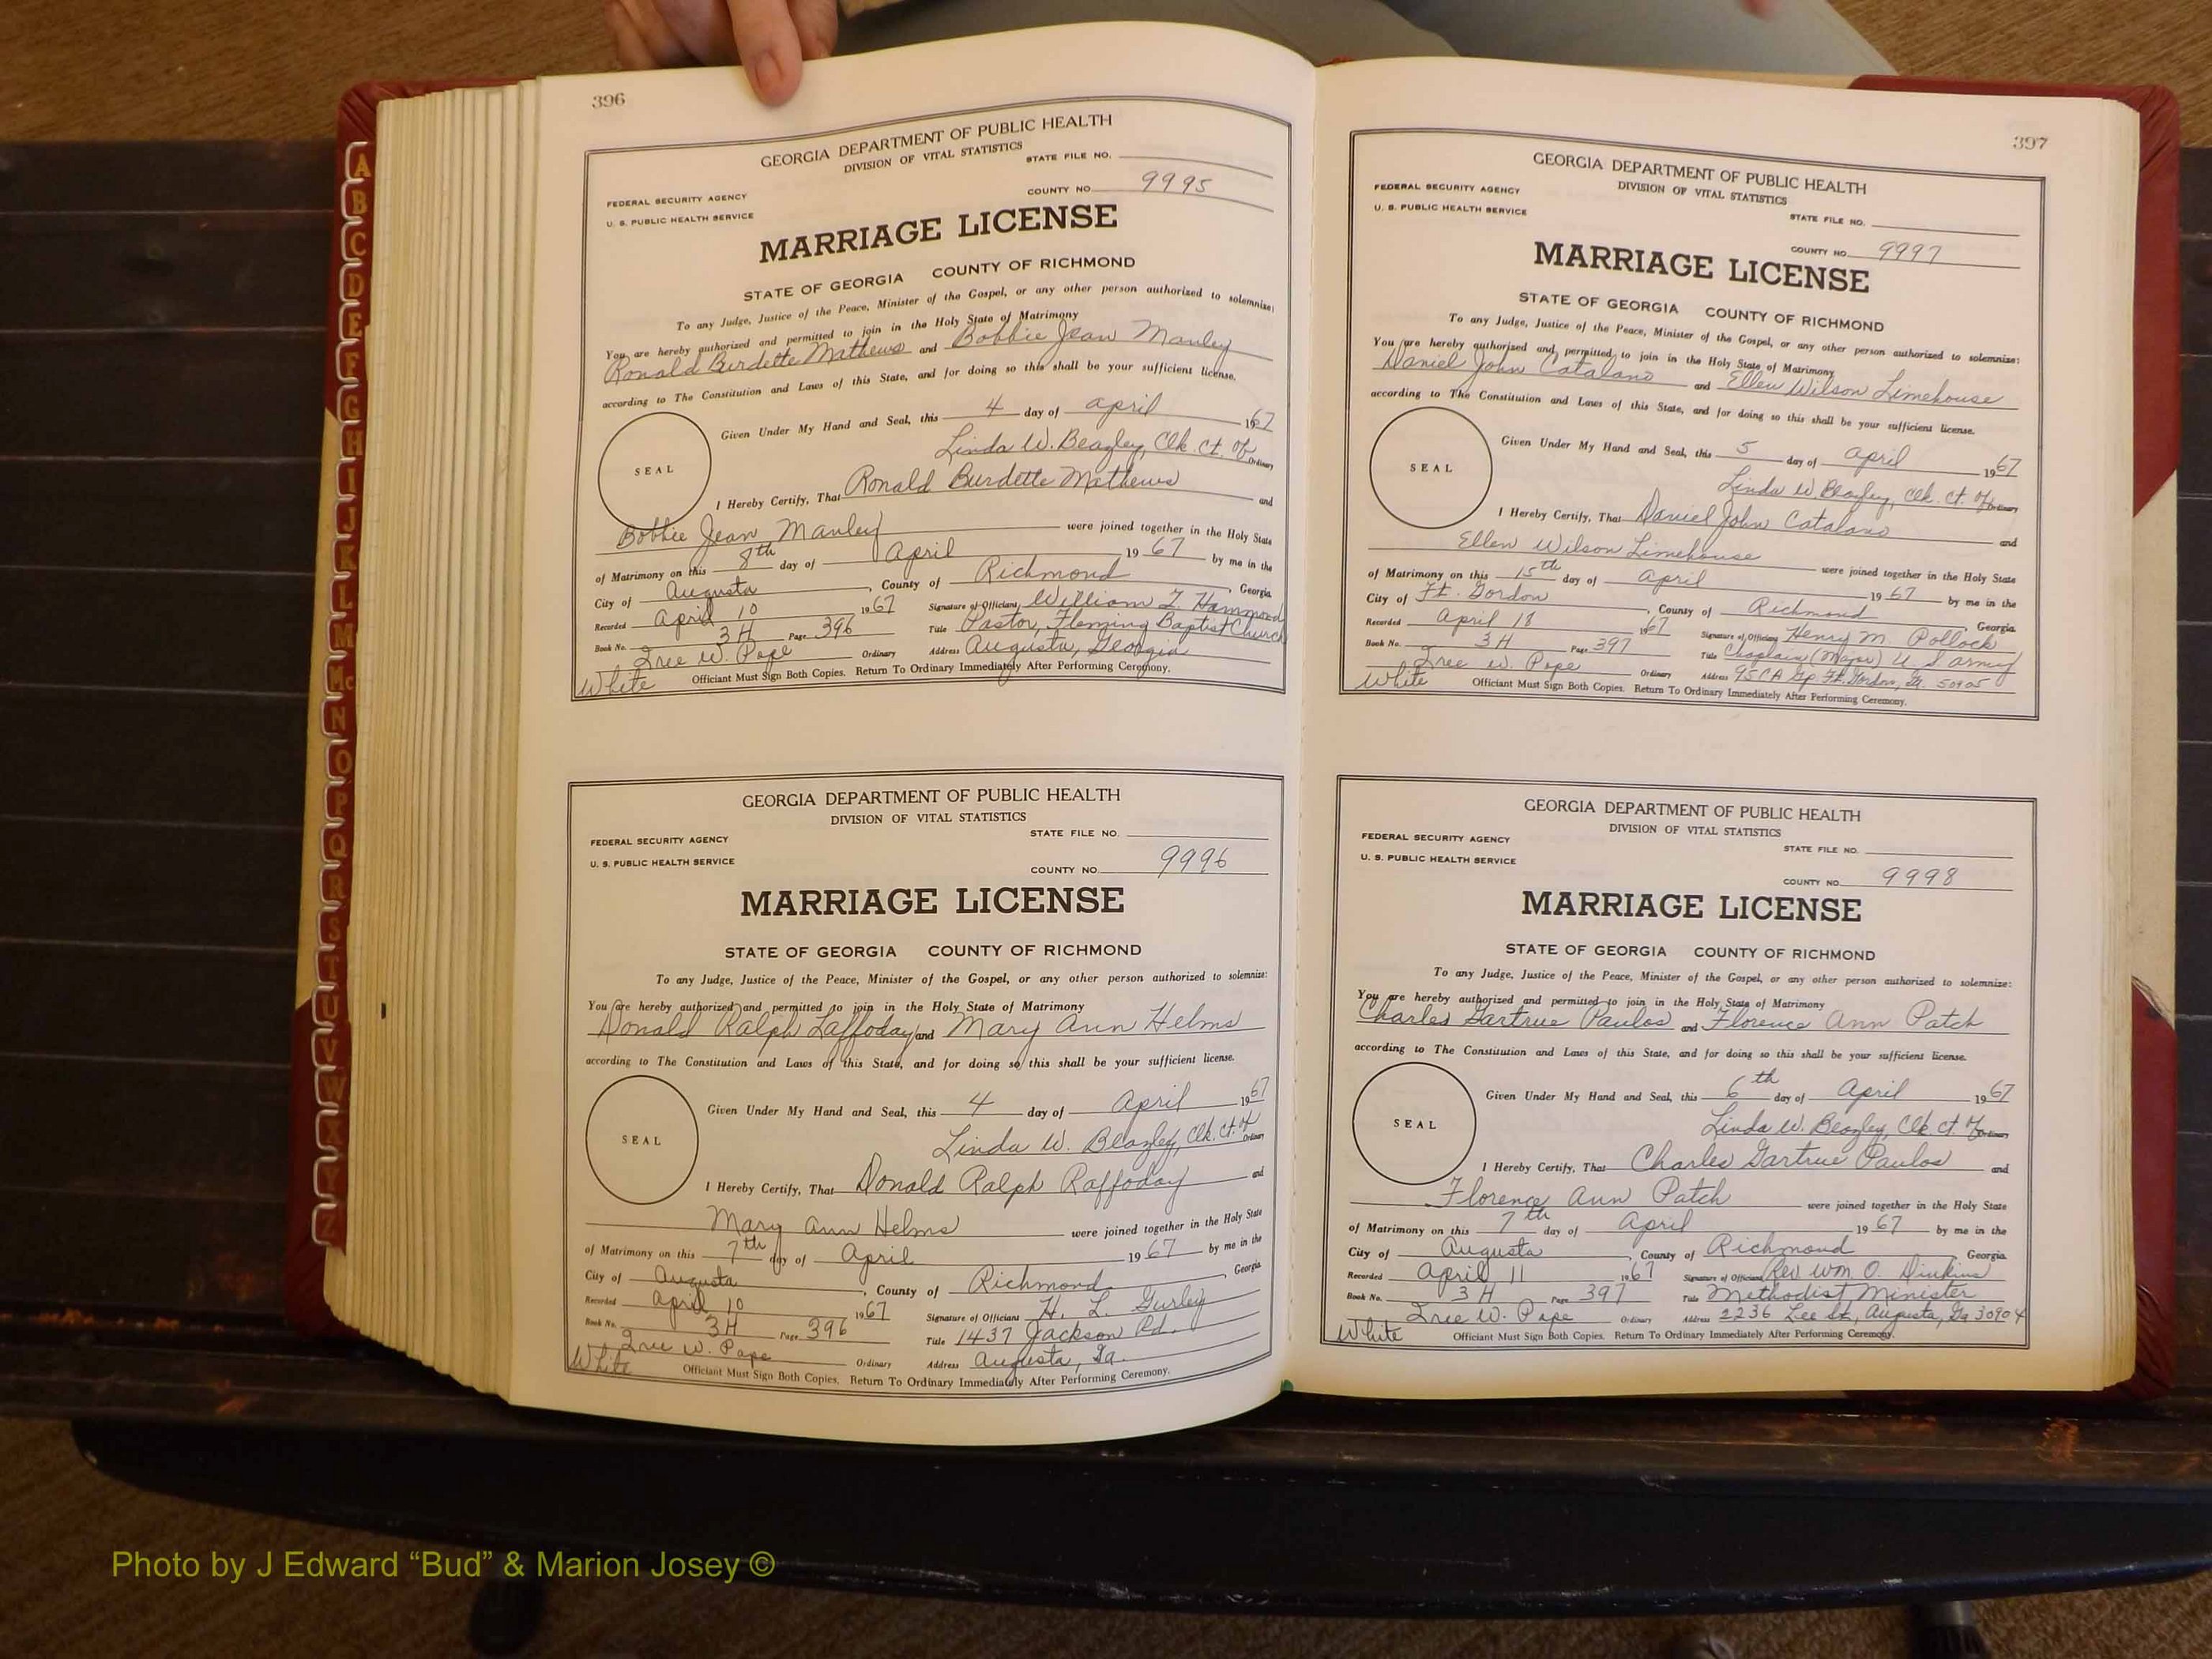 396
GEORGIA DEPARTMENT OF PUBLIC HEALTH
DIVISION OF VITAL STATISTICS
STATE FILE NO.
FEDERAL SECURITY AGENCY
COUNTY NO. 9995
U. S. PUBLIC HEALTH SERVICE
MARRIAGE LICENSE
STATE OF GEORGIA COUNTY OF RICHMOND
To any Judge, Justice of the Peace, Minister of the Gospel, or any other person authorized to solemnize:
You are hereby authorized and permitted to join in the Holy State of Matrimony
Ronald Burdette Mathews and Bobbie Jean Manley
according to The Constitution and Laws of this State, and for doing so this shall be your sufficient license.
Given Under My Hand and Seal, this 4 day of April 1967
SEAL
Linda W. Beazley, Clk. Ct. of Ordinary
I Hereby Certify, That Ronald Burdette Mathews and
Bobbie Jean Manley were joined together in the Holy State
of Matrimony on this 8th day of April 1967 by me in the
City of Augusta, County of Richmond, Georgia
Recorded April 10 1967 Signature of Officiant William Hammond
Book No. 3H Page 396 Title Pastor, Fleming Baptist Church
W. Pope Ordinary Address Augusta, Georgia
White Officiant Must Sign Both Copies. Return To Ordinary Immediately After Performing Ceremony.
GEORGIA DEPARTMENT OF PUBLIC HEALTH
DIVISION OF VITAL STATISTICS
FEDERAL SECURITY AGENCY STATE FILE NO.
U. S. PUBLIC HEALTH SERVICE COUNTY NO. 9996
MARRIAGE LICENSE
STATE OF GEORGIA COUNTY OF RICHMOND
To any Judge, Justice of the Peace, Minister of the Gospel, or any other person authorized to solemnize:
You are hereby authorized and permitted to join in the Holy State of Matrimony
Donald Ralph Laffoday and Mary Ann Helms
according to The Constitution and Laws of this State, and for doing so this shall be your sufficient license.
Given Under My Hand and Seal, this 4 day of April 1967
SEAL
Linda W. Beazley, Clk. Ct. of Ordinary
I Hereby Certify, That Donald Ralph Raffoday and
Mary Ann Helms were joined together in the Holy State
of Matrimony on this 7th day of April 1967 by me in the
City of Augusta, County of Richmond, Georgia
Recorded April 10 1967 Signature of Officiant H. L. Gurley
Book No. 3H Page 396 Title 1437 Jackson Rd.
W. Pope Ordinary Address Augusta, Ga.
White Officiant Must Sign Both Copies. Return To Ordinary Immediately After Performing Ceremony.
397
GEORGIA DEPARTMENT OF PUBLIC HEALTH
DIVISION OF VITAL STATISTICS
FEDERAL SECURITY AGENCY
U. S. PUBLIC HEALTH SERVICE
STATE FILE NO.
COUNTY NO. 9997
MARRIAGE LICENSE
STATE OF GEORGIA COUNTY OF RICHMOND
To any Judge, Justice of the Peace, Minister of the Gospel, or any other person authorized to solemnize:
You are hereby authorized and permitted to join in the Holy State of Matrimony
Daniel John Catalano and Ellen Wilson Limehouse
according to The Constitution and Laws of this State, and for doing so this shall be your sufficient license.
Given Under My Hand and Seal, this 5 day of April 1967
SEAL
Linda W. Beazley, Clk. Ct. of Ordinary
I Hereby Certify, That Daniel John Catalano and
Ellen Wilson Limehouse were joined together in the Holy State
of Matrimony on this 15th day of April 1967 by me in the
City of Ft. Gordon, County of Richmond, Georgia
Recorded April 18 1967 Signature of Officiant Henry M. Pollock
Book No. 3H Page 397 Title Chaplain (Major) U S Army
W. Pope Ordinary Address 95 CA Gp Ft. Gordon, Ga. 50905
White Officiant Must Sign Both Copies. Return To Ordinary Immediately After Performing Ceremony.
GEORGIA DEPARTMENT OF PUBLIC HEALTH
DIVISION OF VITAL STATISTICS
FEDERAL SECURITY AGENCY STATE FILE NO.
U. S. PUBLIC HEALTH SERVICE
COUNTY NO. 9998
MARRIAGE LICENSE
STATE OF GEORGIA COUNTY OF RICHMOND
To any Judge, Justice of the Peace, Minister of the Gospel, or any other person authorized to solemnize:
You are hereby authorized and permitted to join in the Holy State of Matrimony
Charles Gartrue Paulos and Florence Ann Patch
according to The Constitution and Laws of this State, and for doing so this shall be your sufficient license.
Given Under My Hand and Seal, this 6th day of April 1967
SEAL
Linda W. Beazley, Clk. Ct. of Ordinary
I Hereby Certify, That Charles Gartrue Paulos and
Florence Ann Patch were joined together in the Holy State
of Matrimony on this 7th day of April 1967 by me in the
City of Augusta, County of Richmond, Georgia
Recorded April 11 1967 Signature of Officiant Rev Wm. O. Dinkins
Book No. 3H Page 397 Title Methodist Minister
W. Pope Ordinary Address 2236 Lee St, Augusta, Ga 30904
White Officiant Must Sign Both Copies. Return To Ordinary Immediately After Performing Ceremony.
A
B
C
D
E
F
G
H
I
J
K
L
M
Mc
N
O
P
Q
R
S
T
U
V
W
X
Y
Z
Photo by J Edward “Bud” & Marion Josey ©